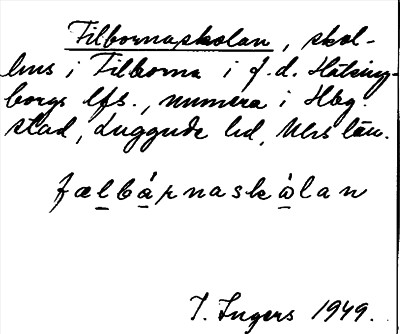 Filbornaskolan, skol-
hus i Filborna i f.d. Hälsing-
borgs lfs., numera i Hbg.
stad, Luggude hd, Mhs län.
fælbárnaskòlan
I. Ingers 1949.